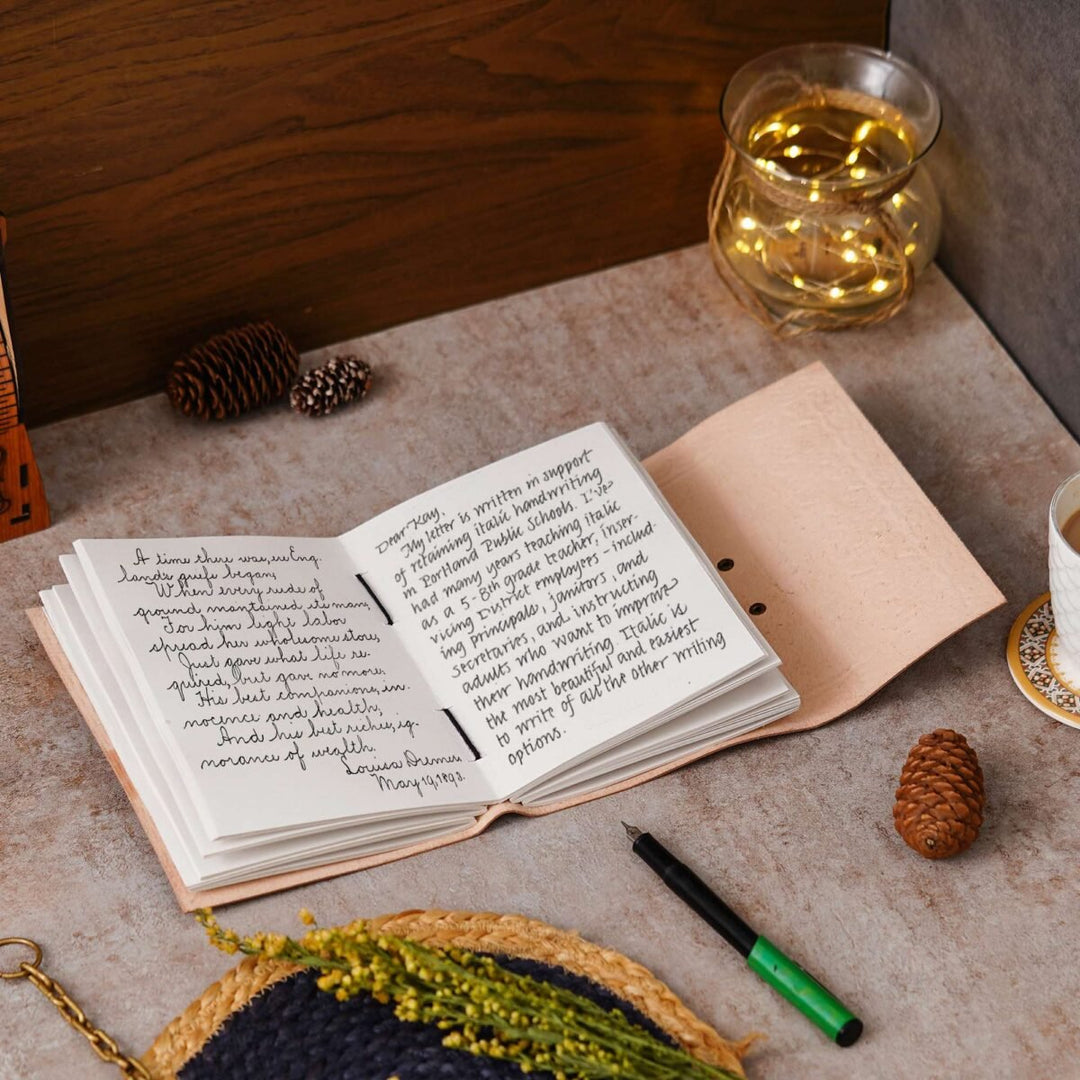 A time there was, ere Eng-
land's griefs began,
When every rood of
ground maintained its man;
For him light labor
spread her wholesome store,
Just gave what life re-
quired, but gave no more;
His best companions, in-
nocence and health,
And his best riches, ig-
norance of wealth.
Louisa
May 19, 1893.
Dear Kay,
My letter is written in support
of retaining italic handwriting
in Portland Public Schools. I've
had many years teaching italic
as a 5-8th grade teacher, inser-
vicing District employees - includ-
ing principals, janitors, and
secretaries, and instructing
adults who want to improve
their handwriting. Italic is
the most beautiful and easiest
to write of all the other writing
options.